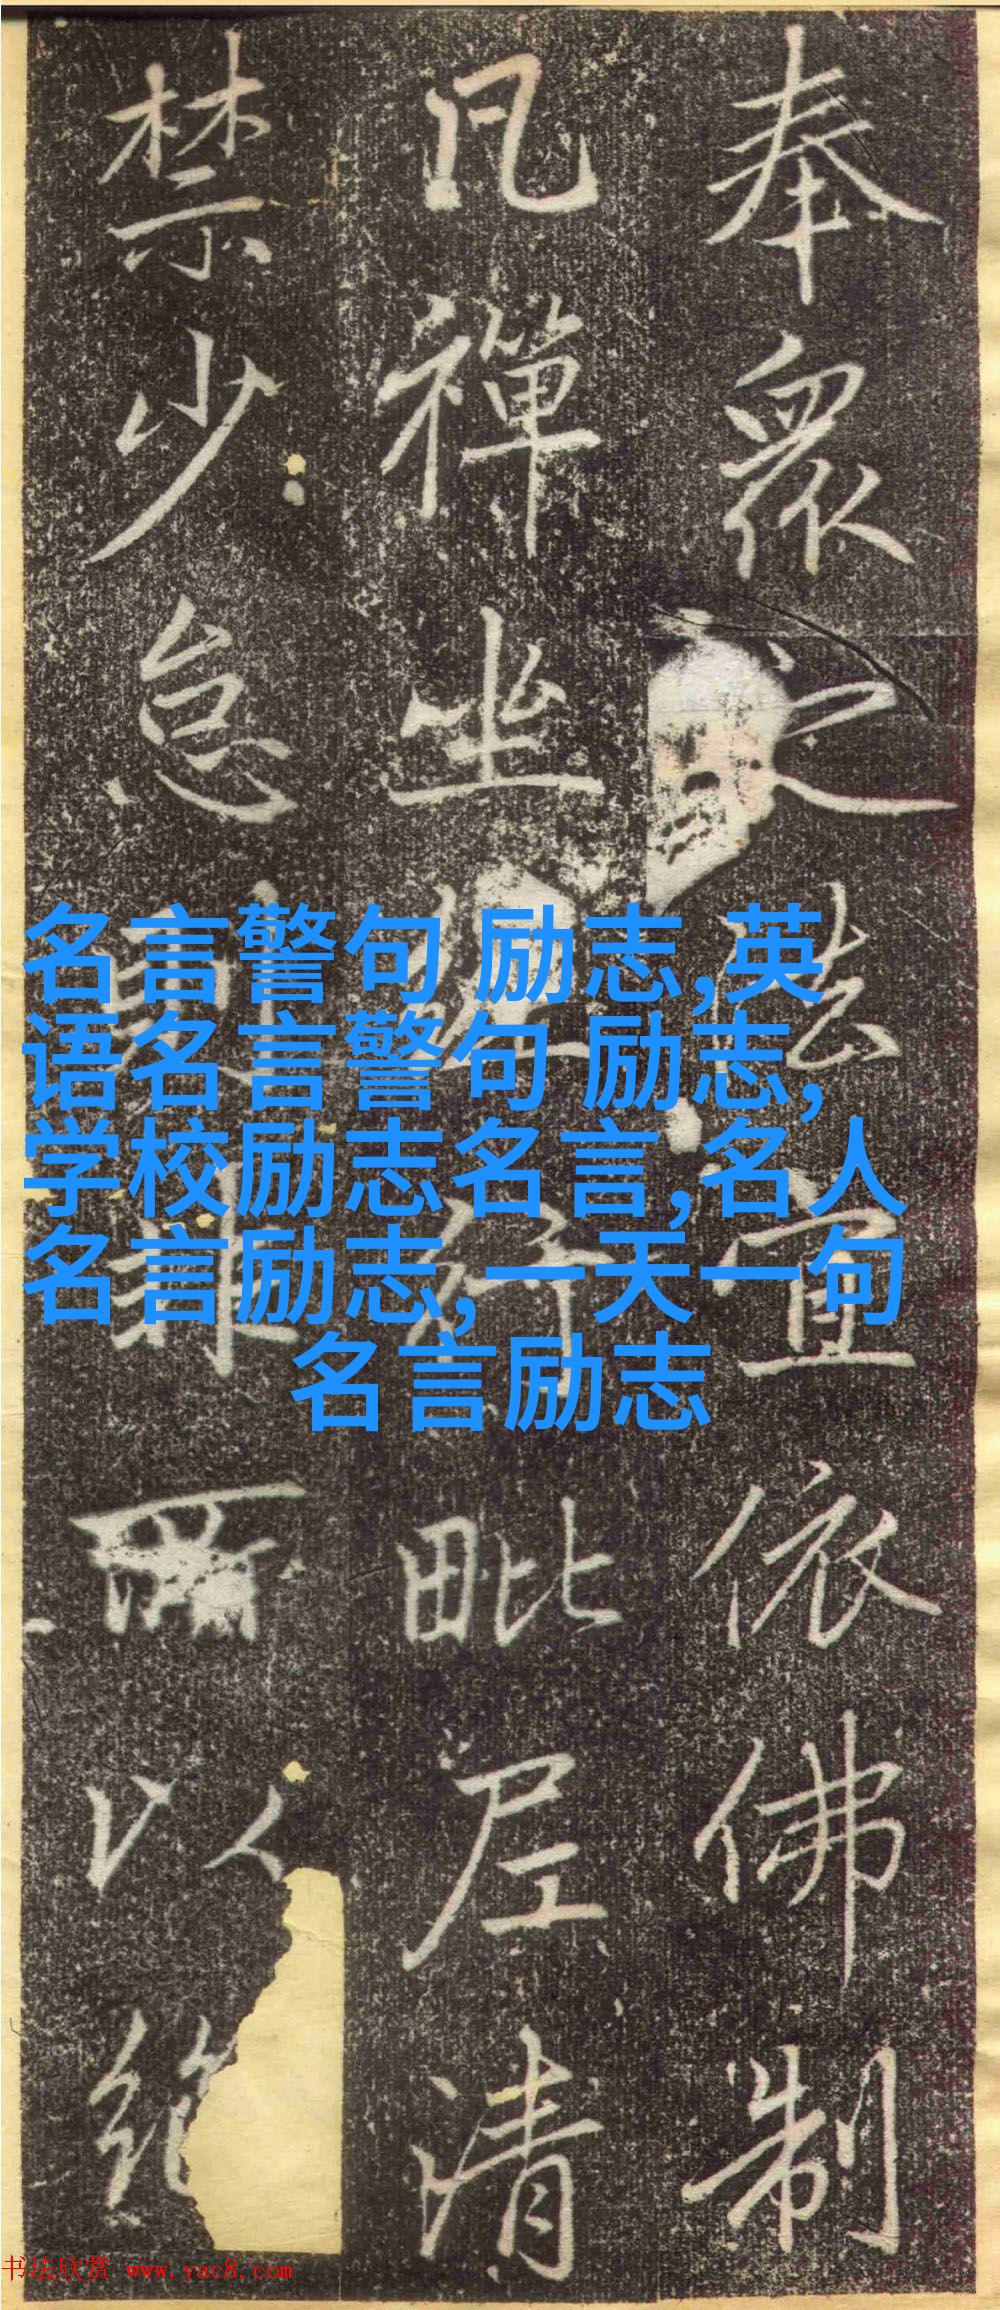 奉眾宜依佛制
凡禪坐行毗尼清
禁少怠以
名言警句 励志,英
语名言警句 励志,
学校励志名言,名人
名言励志, 一天一句
名言励志
书法欣赏 www.yac8.com